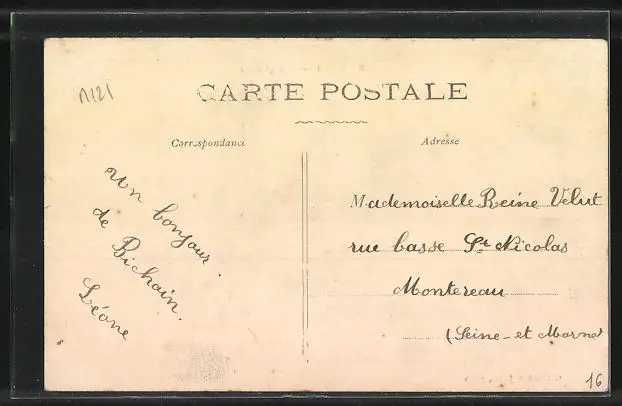 n121
CARTE POSTALE
Correspondance
Adresse
un bonjour
de Bichain.
Léone
Mademoiselle Reine Velut
rue basse St Nicolas
Montereau
(Seine-et Marne)
16